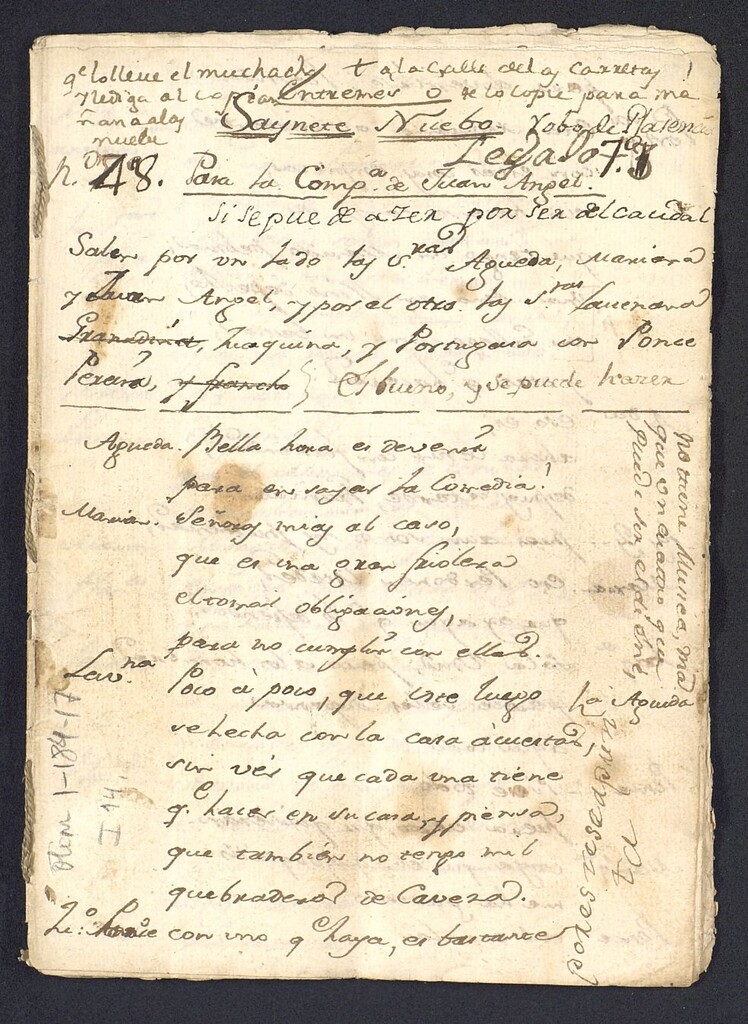 qe lo lleve el muchacho † a la Calle de las Carretas
y le diga al Copian Entremes o te lo copie para ma
ñana a las Saynete Nuebo. robo de Plasencia
nueve Legajo 7.
n. 48. Para la Comp.a de Juan Angel.
si se puede azer por ser del caudal
Salen por un lado las S.ras Agueda, Mariana
y Juan Angel, y por el otro las S.ras Lavenana
Granadina, Juaquina, y Portuguesa con Ponce
Perera, y francho } Es bueno, y se puede hazer
Agueda. Bella hora es de venir
para ensayar la Comedia!
Marian. Señoras mias al caso,
que es una gran friolera
el tomar obligaciones,
para no cumplir con ellas.
Lav.na Poco à poco, que uste luego
se hecha con la casa à cuestas,
sin vér que cada una tiene
q.e hacer en su casa, y piensa,
que tambien no tengo mil
quebraderos de Caveza.
Ponce con uno q.e haya, es bastante
no tiene Musica, mas
que un quatro que
puede ser el de one,
la Agueda
ta
Olim 1-184-17
I 14.